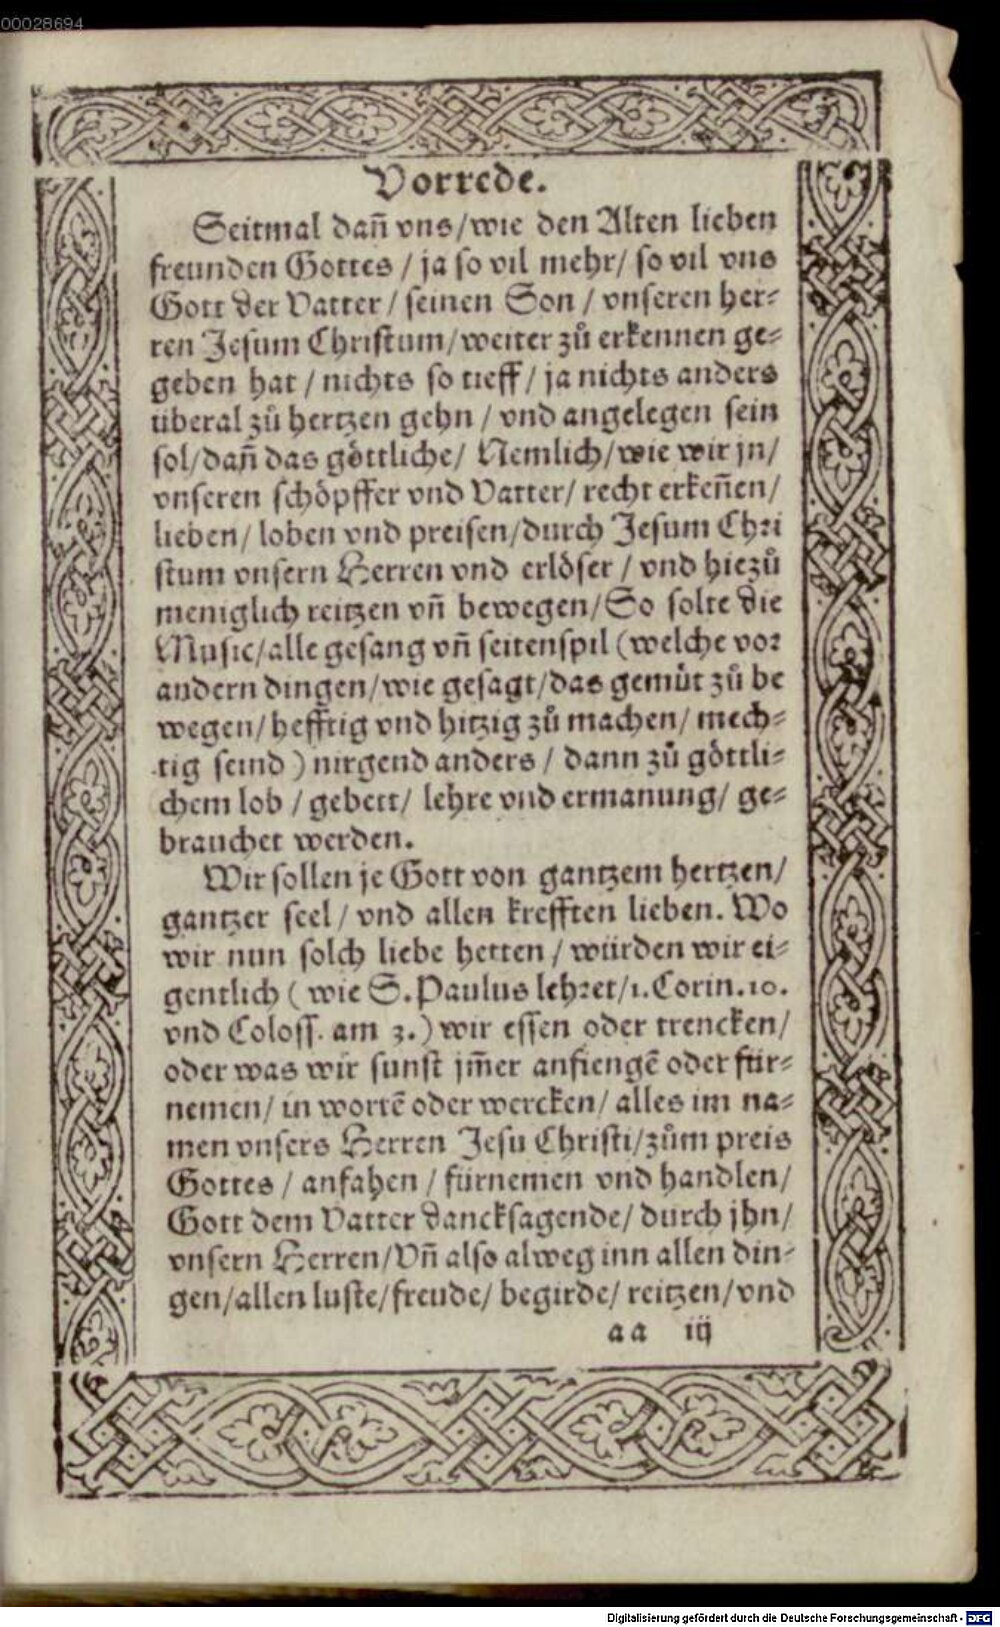 00028694
Vorrede.
Seitmal dañ vns/wie den Alten lieben
freunden Gottes / ja so vil mehr/ so vil vns
Gott der Vatter / seinen Son / vnseren her⸗
ren Jesum Christum/weiter zů erkennen ge⸗
geben hat / nichts so tieff / ja nichts anders
überal zů hertzen gehn / vnd angelegen sein
sol/dañ das göttliche/ Nemlich/wie wir jn/
vnseren schöpffer vnd Vatter/ recht erkeñen/
lieben/ loben vnd preisen/durch Jesum Chri
stum vnsern Herren vnd erlöser / vnd hiezů
meniglich reitzen vñ bewegen/So solte die
Music/alle gesang vñ seitenspil (welche vor
andern dingen/wie gesagt/das gemüt zů be
wegen/hefftig vnd hitzig zů machen/ mech⸗
tig seind ) nirgend anders / dann zů göttli⸗
chem lob / gebett/ lehre vnd ermanung/ ge⸗
brauchet werden.
Wir sollen je Gott von gantzem hertzen/
gantzer seel / vnd allen krefften lieben. Wo
wir nun solch liebe hetten / würden wir ei⸗
gentlich ( wie S. Paulus lehret/1. Corin. 10.
vnd Coloss. am 3.) wir essen oder trencken/
oder was wir sunst jm̃er anfiengẽ oder für⸗
nemen/ in wortẽ oder wercken/ alles im na⸗
men vnsers Herren Jesu Christi/zům preis
Gottes / anfahen / fürnemen vnd handlen/
Gott dem Vatter dancksagende/ durch jhn/
vnsern Herren/Vñ also alweg inn allen din⸗
gen/allen luste/freude/ begirde/ reitzen/vnd
aa iij
Digitalisierung gefördert durch die Deutsche Forschungsgemeinschaft - DFG